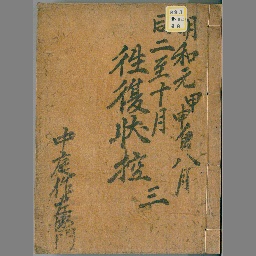 明和元甲申自八月
同二至十月
往復状控
三
中庭作左衛門